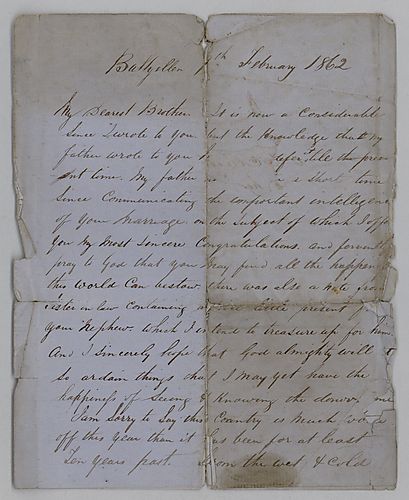 Ballyellen th February 1862
My Dearest Brother It is now a Considerable
since I wrote to you but the Knowledge that my
father wrote to you the pres
ent time. My father a short time
since Communicating the important intelligence
of your Marriage. on the subject of which I offer
you my Most Sincere Congratulations. and fervently
pray to God that you May find all the happin
this World Can bestow. there was also a note from
sister in law Containing little present f
your Nephew. which I intend to treasure up for him
And I Sincerely hope that God almighty will
so ordain things that I may yet have the
happiness of Seeing & Knowing the donor.
I am Sorry to Say this Country is Much worse
off this Year than it has been for at least
Ten years past. from the wet & Cold